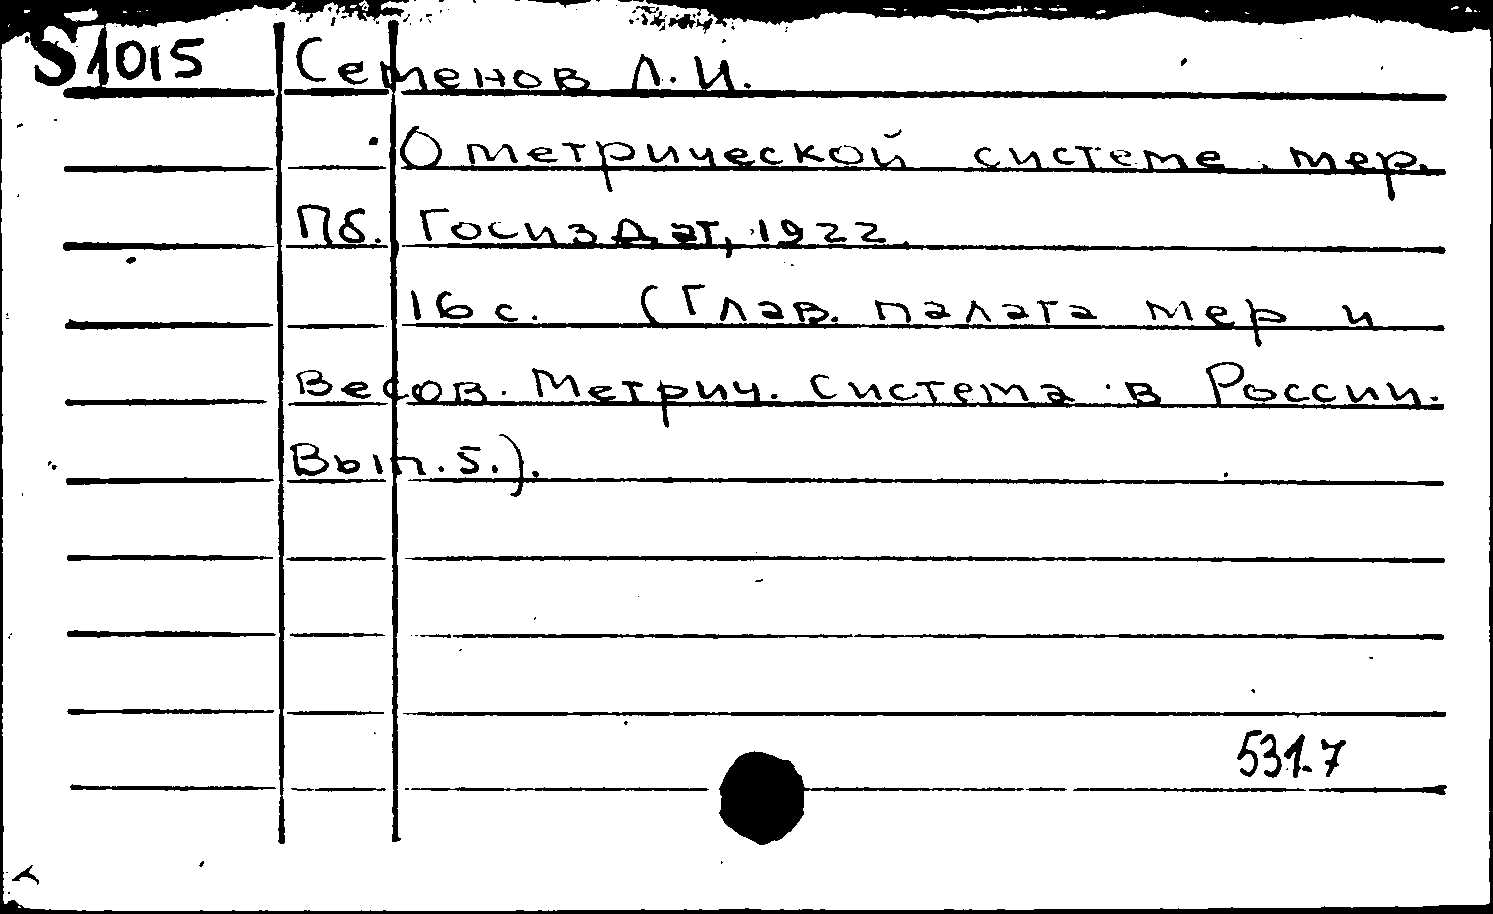 S1015 Семенов Л.И.
О метрической системе мер.
Пб. Госиздат, 1922.
16 с. (Глав. палата мер и
весов. Метрич. система в России.
Вып.5.).
531.7